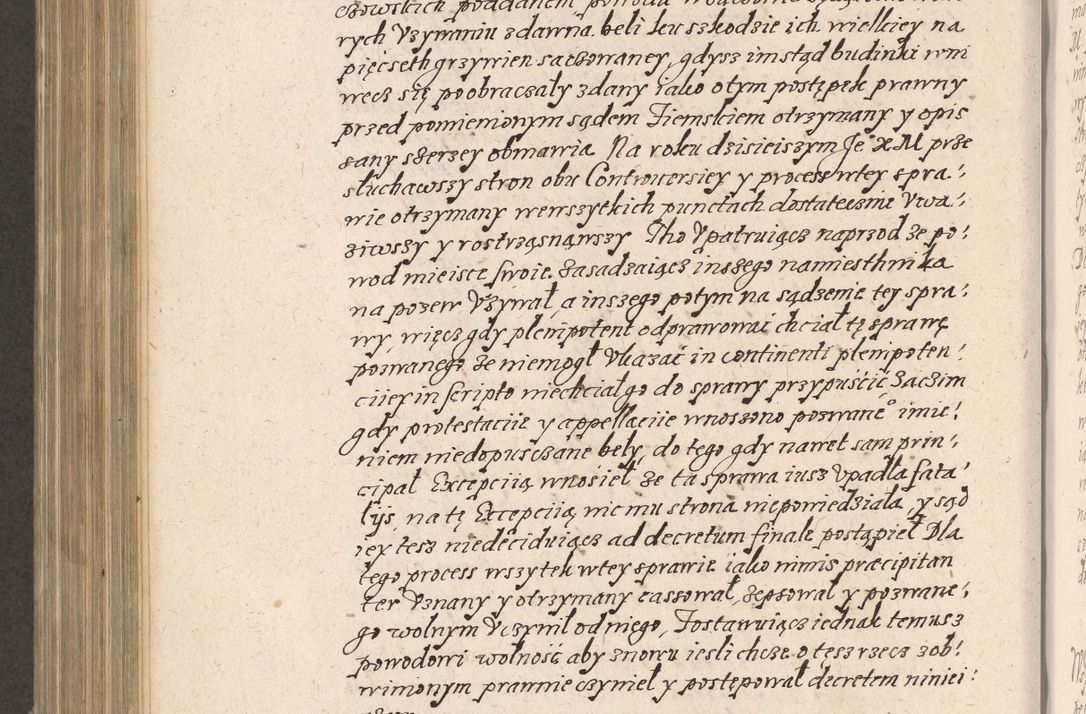 rych Vzywaniu zdawna beli ku szkodzie ich wielkiey na
pięcseth grzywien saczowaney, gdysz im stąd budinki w ni
wecz się poobraczały zdany iako o tym postępek prawny
przed pomienionym sądem Ziemskiem otrzymany y opis
sany szerzey obmawia Na roku dzisieiszym Je° X M prze
słuchawszy stron obu Controwersiey y process w tey spra:
wie otrzymany we wszytkich punctach dostatecznie Vwa:
ziwszy y rostrząsnąwszy Tho Vpatruiącz naprzod że po:
wod mieisce swoie, zasadzaiącz inszego namiesthnika
na pozew Vżywał, a inszego potym na sądzenie tey spra:
wy, więcz gdy plenipotent odprawowai chciał tę sprawę
pozwanego że niemogł Vkazać in continenti plenipoten:
ciiey in scripto niechciał go do sprawy przypuścić Zaczim
gdy protestaciie y appellaciie wnoszono pozwane° imie:
niem niedopusczane beły, do tego gdy nawet sam prin:
cipał Excepciią wnosieł że ta sprawa iusz Vpadla fata:
lijs, na tę Excepciią nic mu strona nie powiedziała, y sąd
iey tesz niedeciduiącz ad decretum finale postąpieł Dla
tego process wszytek w tey sprawie iako nimis præcipitan
ter Vznany y otrzymany cassował, zepsował y pozwane:
go wolnym Vczynił od niego, Zostawuiącz iednak temusz
powodowi wolność aby znowu iesli chcze o tesz rzecz zob:
winionym prawnie czynieł y postępował decretem niniei: